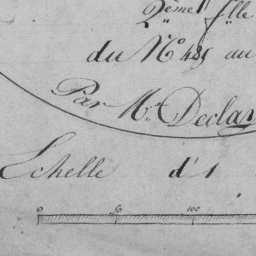 2ème flle
du N° 485 au
Par Mr. Declar
Echelle d'1
0 50 100